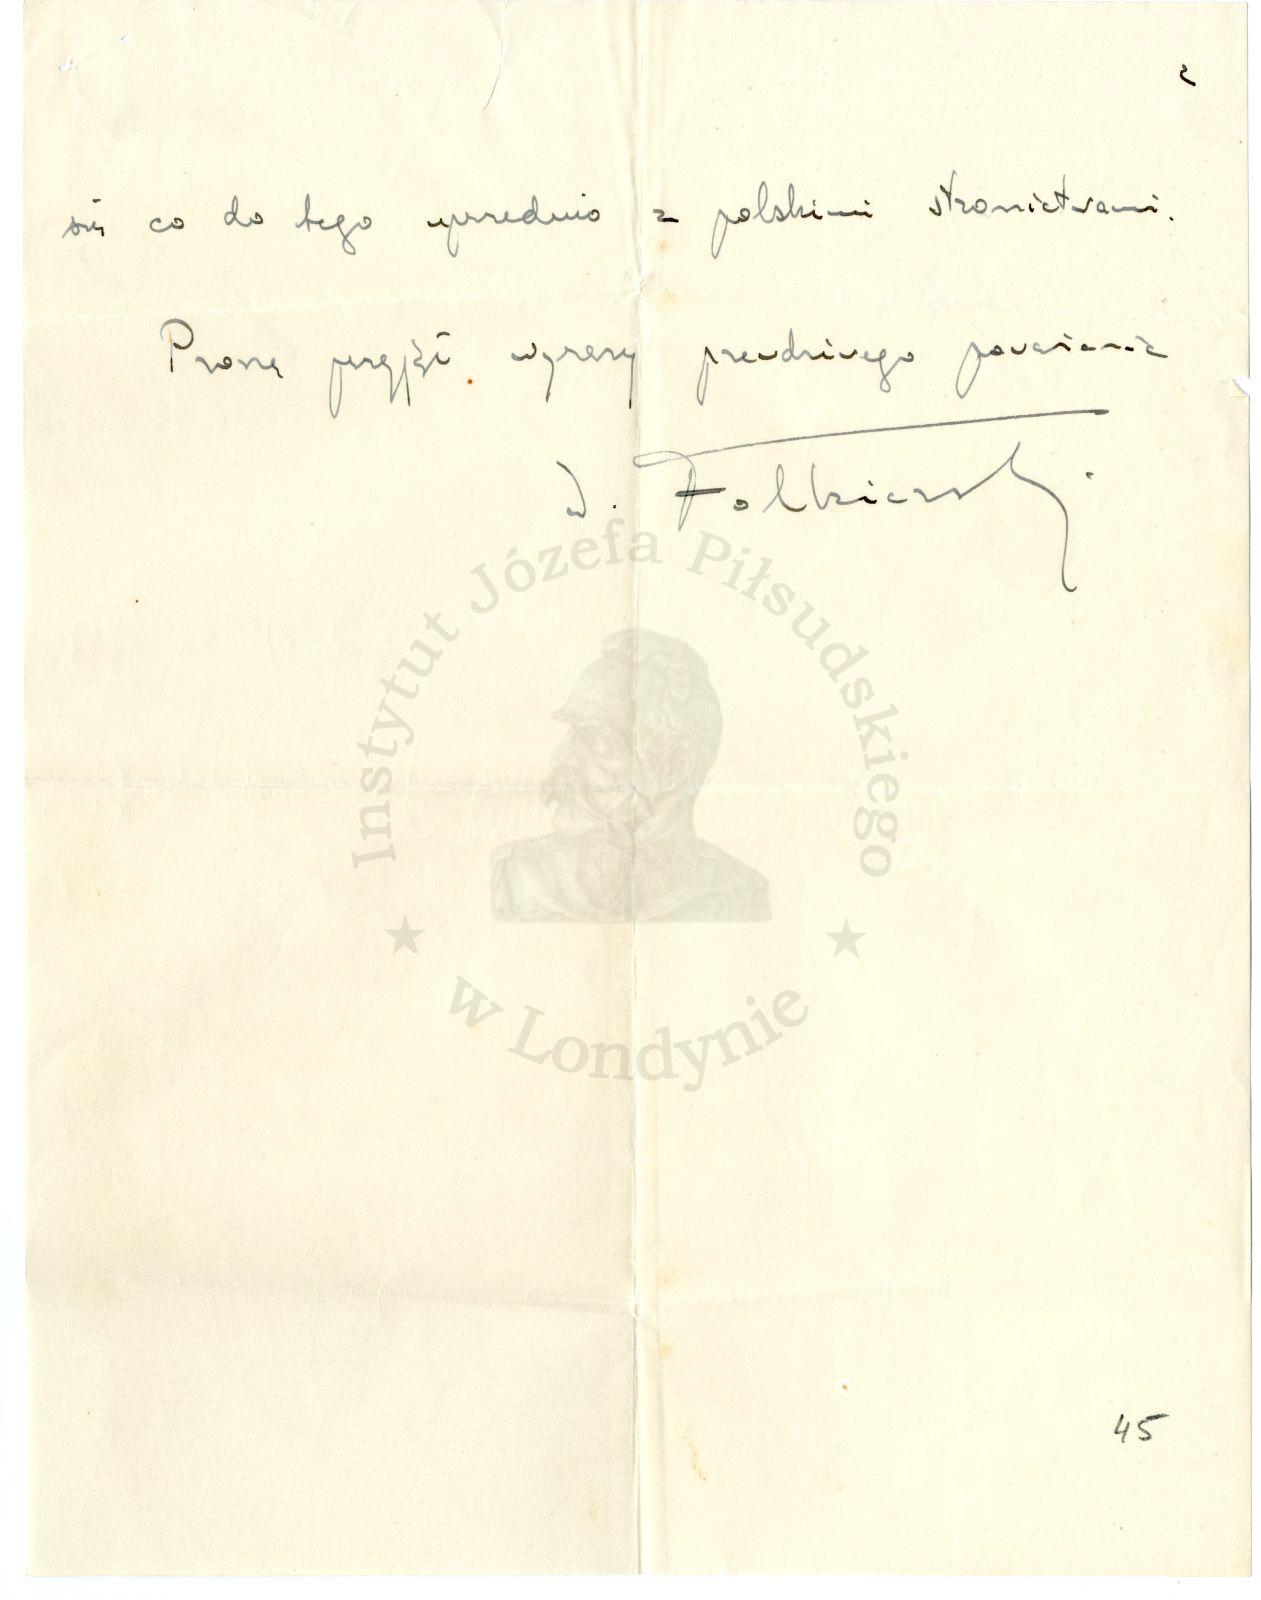 2
się co do tego uprzednio z polskimi stronictwami.
Proszę przyjąć wyrazy prawdziwego poważania
W. Folkierski
Instytut Józefa Piłsudskiego
w Londynie
45